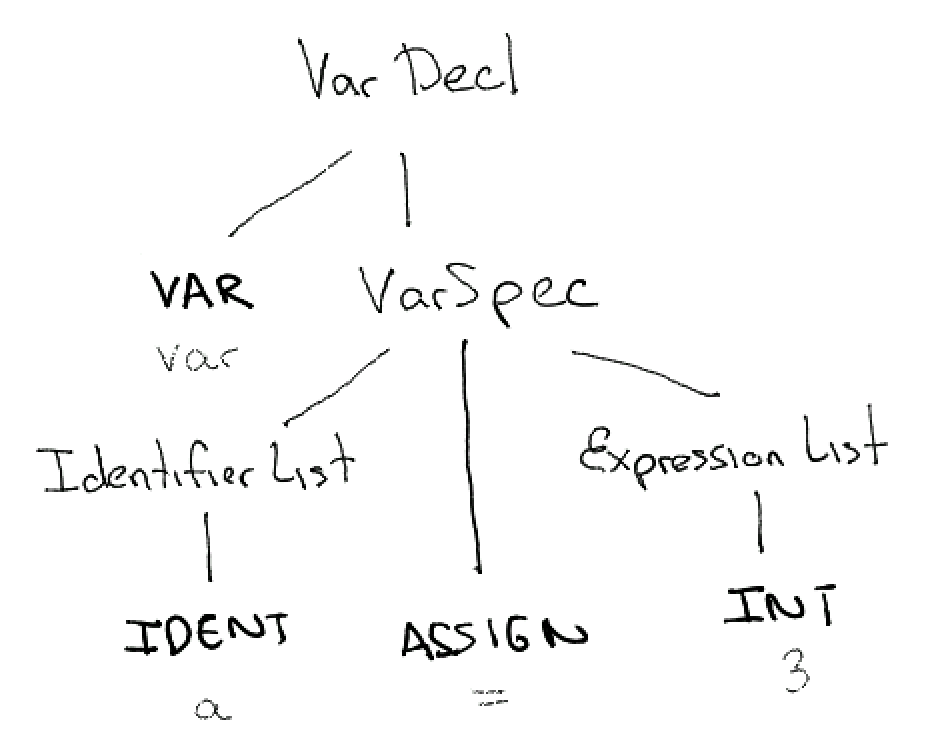 Var Decl
VAR VarSpec
var
Identifier List Expression List
IDENT ASSIGN INT
a = 3